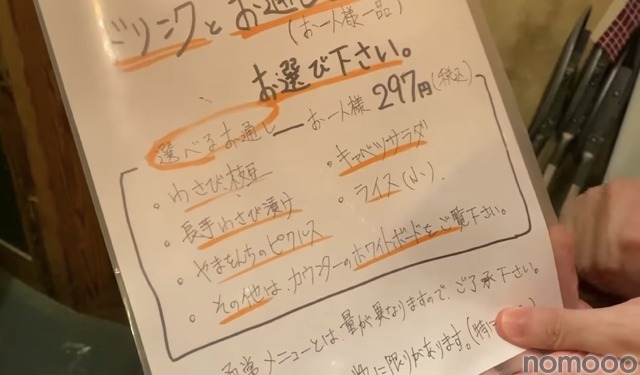 ドリンクとお通し
(お一人様一品)
お選び下さい。
選べるお通し ― お一人様 297円(税込)
・わさび枝豆
・キャベツサラダ
・長芋わさび漬け
・ライス(小)
・やまもんちのピクルス
・その他は、カウンターのホワイトボードをご覧下さい。
通常メニューとは、量が異なりますので、ご了承下さい。
に限りがあります。
nomooo